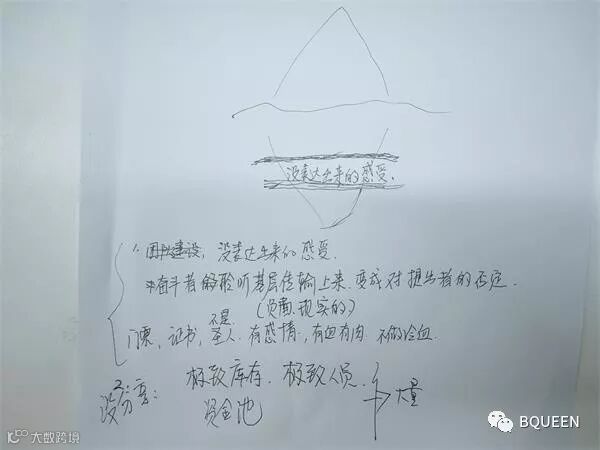 没表达出来的感受.
1. 团队建设, 没表达出来的感受.
奋斗者 聆听基层传输上来 变成对提出者的否定.
(负面.现实的)
不是
门票, 证书, 圣人, 有感情, 有血有肉 不做冷血.
2.
没分享: 极致库存. 极致人员.
资金池
大量
大数跨境
BQUEEN